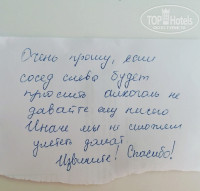 TOP Hotels
Очень прошу, если
сосед снова будет
просить алкоголь не
давайте ему
Иначе мы не сможем
улететь домой
Извините! Спасибо!